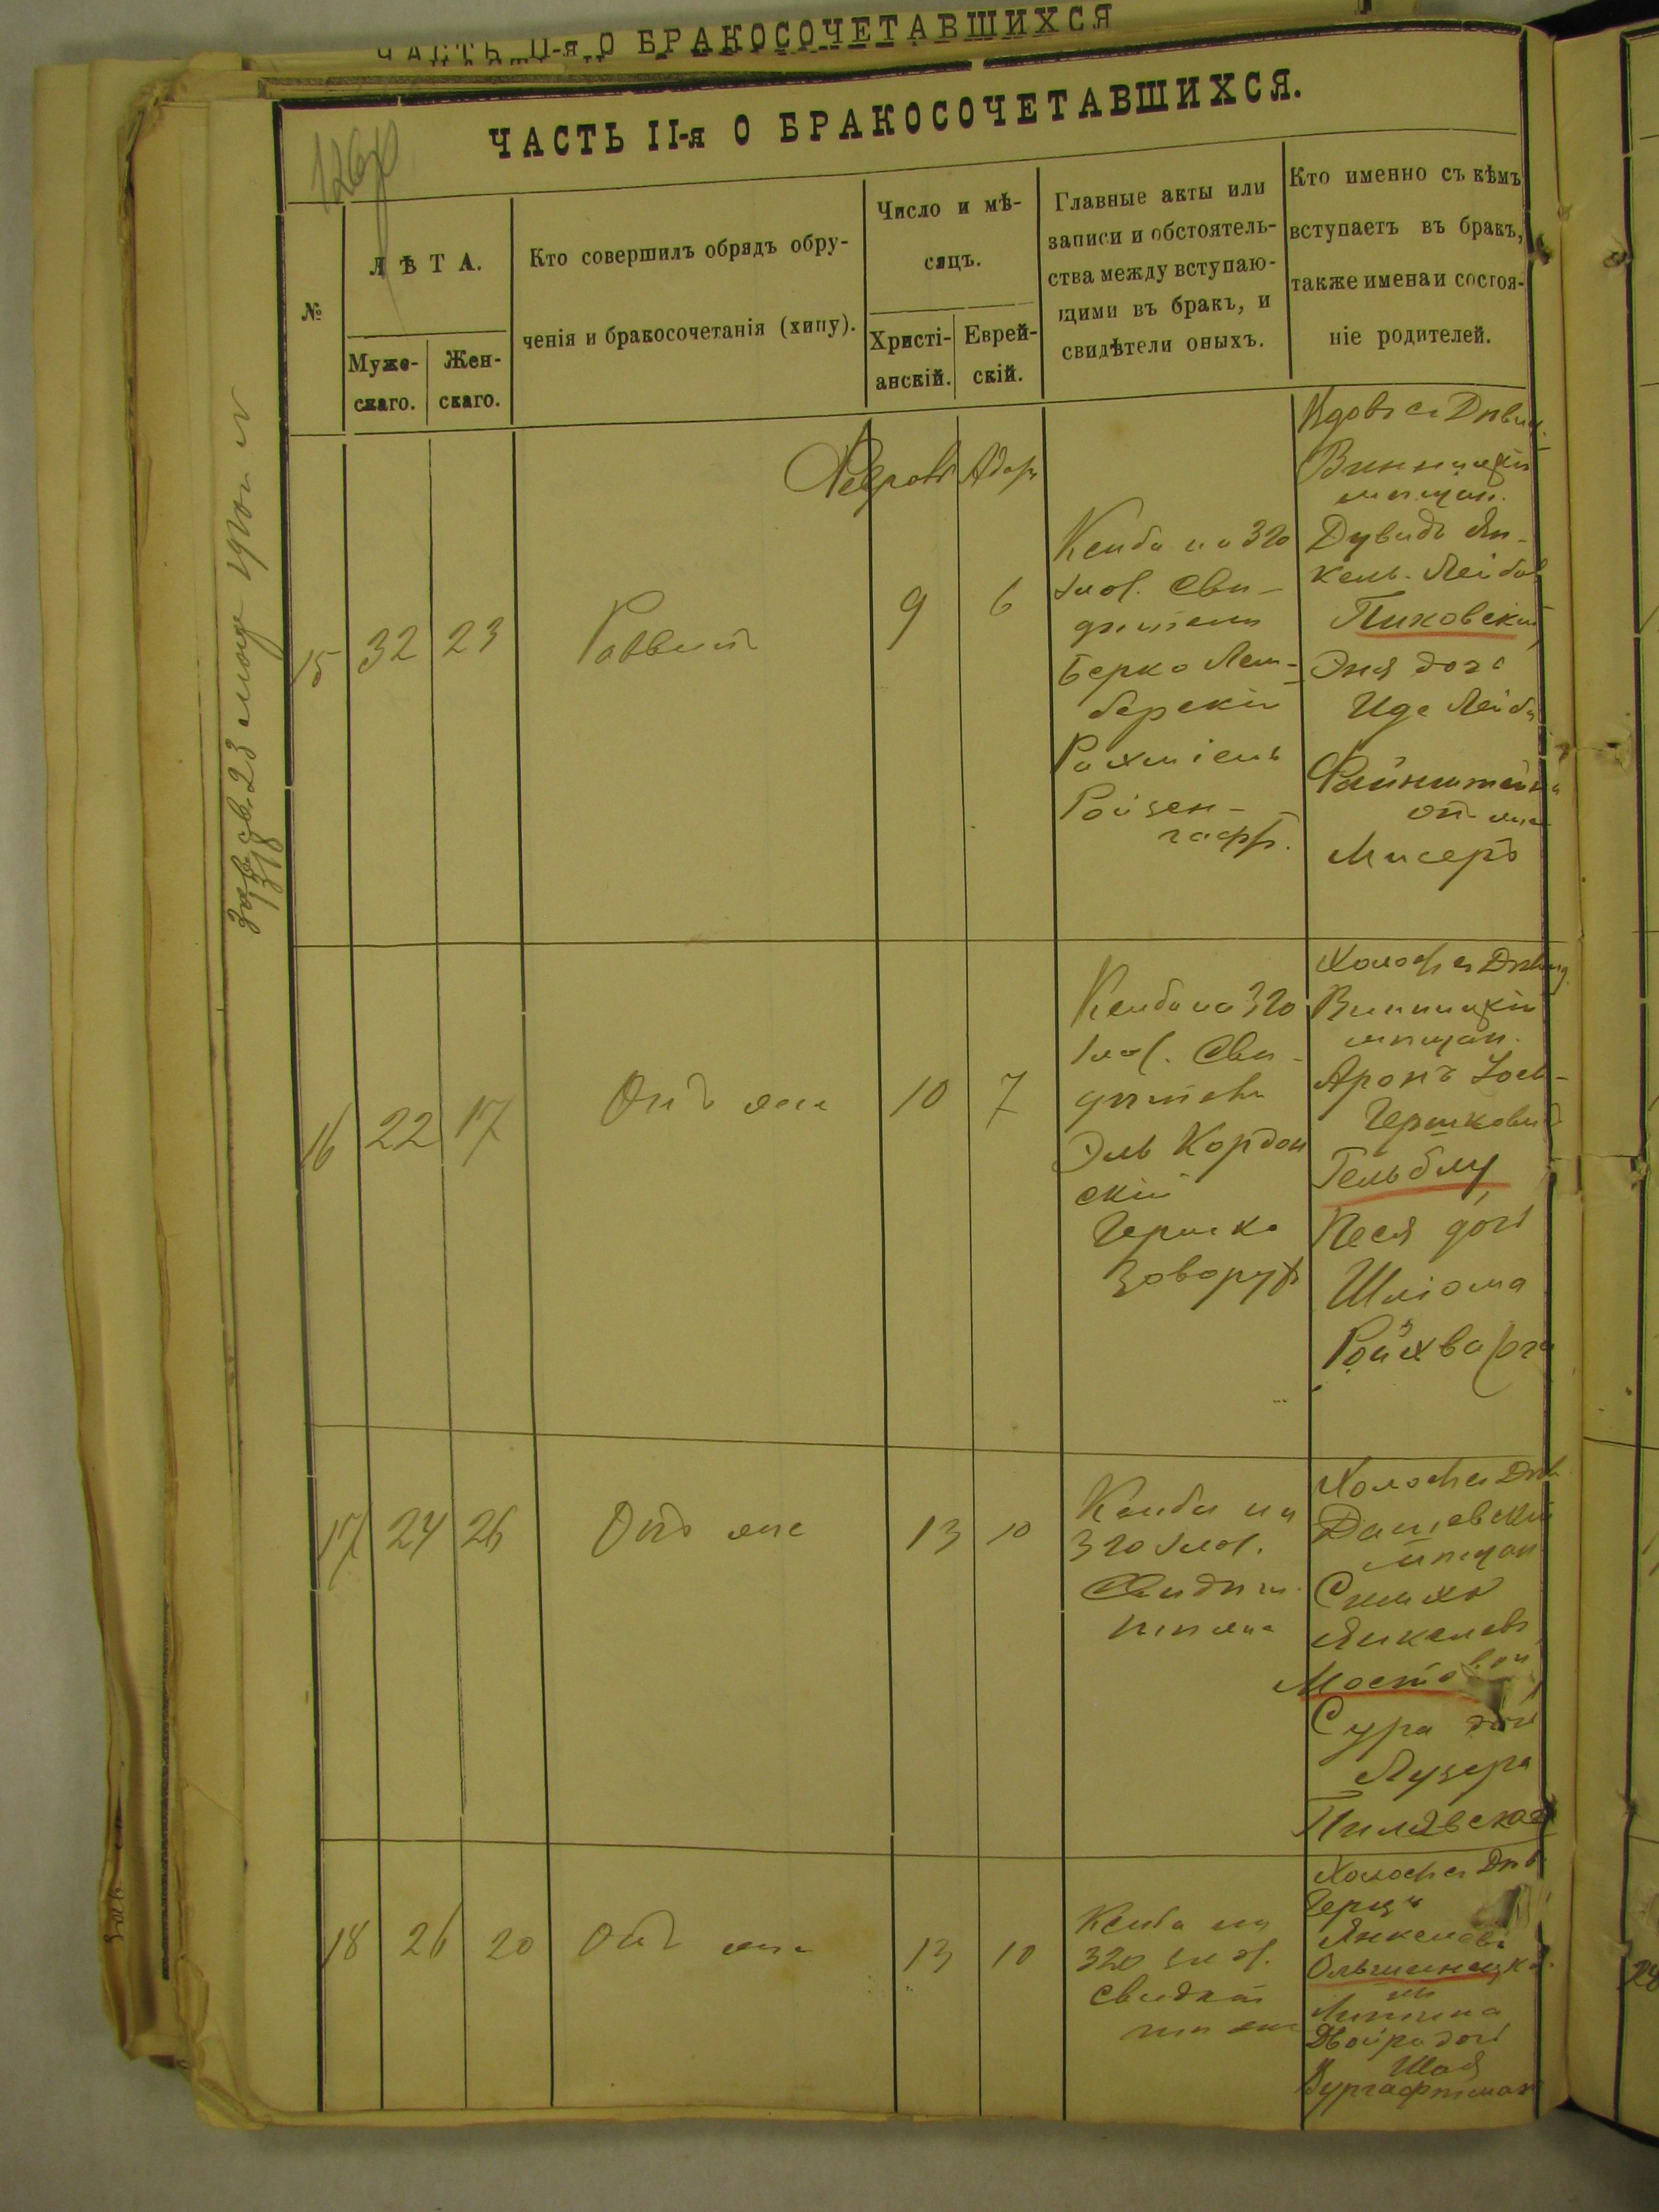 ЧАСТЬ II-я О БРАКОСОЧЕТАВШИХСЯ
ЧАСТЬ II-я О БРАКОСОЧЕТАВШИХСЯ.
№
ЛѢТА.
Муже-
скаго.
Жен-
скаго.
Кто совершилъ обрядъ обру-
ченія и бракосочетанія (хипу).
Число и мѣ-
сяцъ.
Христі-
анскій.
Еврей-
скій.
Главные акты или
записи и обстоятель-
ства между вступаю-
щими въ бракъ, и
свидѣтели оныхъ.
Кто именно съ кѣмъ
вступаетъ въ бракъ,
также имена и состоя-
ніе родителей.
Адаръ
15
32
23
Раввинъ
9
6
Кенба на 320
злоб. Сви-
дѣтели
Берко Лем-
берскій
Рахміель
Ройзен-
гафт.
Вдовъ съ Дѣвиц.
Винницкій
мѣщан.
Дувидъ Ян-
кель-Лейбов
Пиковскій
Эня дочь
Ицс Лейбы
Файнштейна
отъ
Мисеръ
16
22
17
Онъ же
10
7
Кенба на 320
злоб. Сви-
дѣтели
Эль Кордон
скій
Гершко
Холост съ Дѣвиц.
Винницкій
мѣщан.
Аронъ Іось-
Гершковъ
Гельблу
Песя дочь
Шліома
17
24
26
Онъ же
13
10
Кенба на
320 злоб.
Свидѣт.
тѣ же
Холост съ Дѣв
Дашевскій
мѣщан
Симха
Янкелевъ
Сура дочь
Лузера
Пилявская
18
26
20
Онъ же
13
10
Кенба на
320 злоб.
свидѣт
тѣ же
Холост съ Дѣв.
Герш
Янкелевъ
Двойра дочь
Шая
Вургафтман